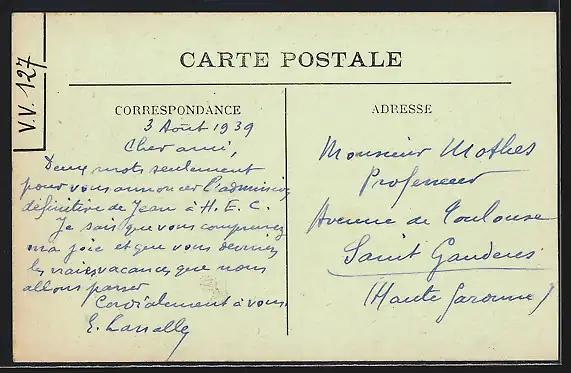 V.V. 127
CARTE POSTALE
CORRESPONDANCE
3 Août 1939
Cher ami,
Deux mots seulement
pour vous annoncer l'admission
définitive de Jean à H.E.C.
Je sais que vous comprenez
ma joie et que vous devinez
les vraies vacances que nous
allons passer
Cordialement à vous
E. Lasalle
ADRESSE
Monsieur Mathes
Professeur
Avenue de Toulouse
Saint Gaudens
(Haute Garonne)